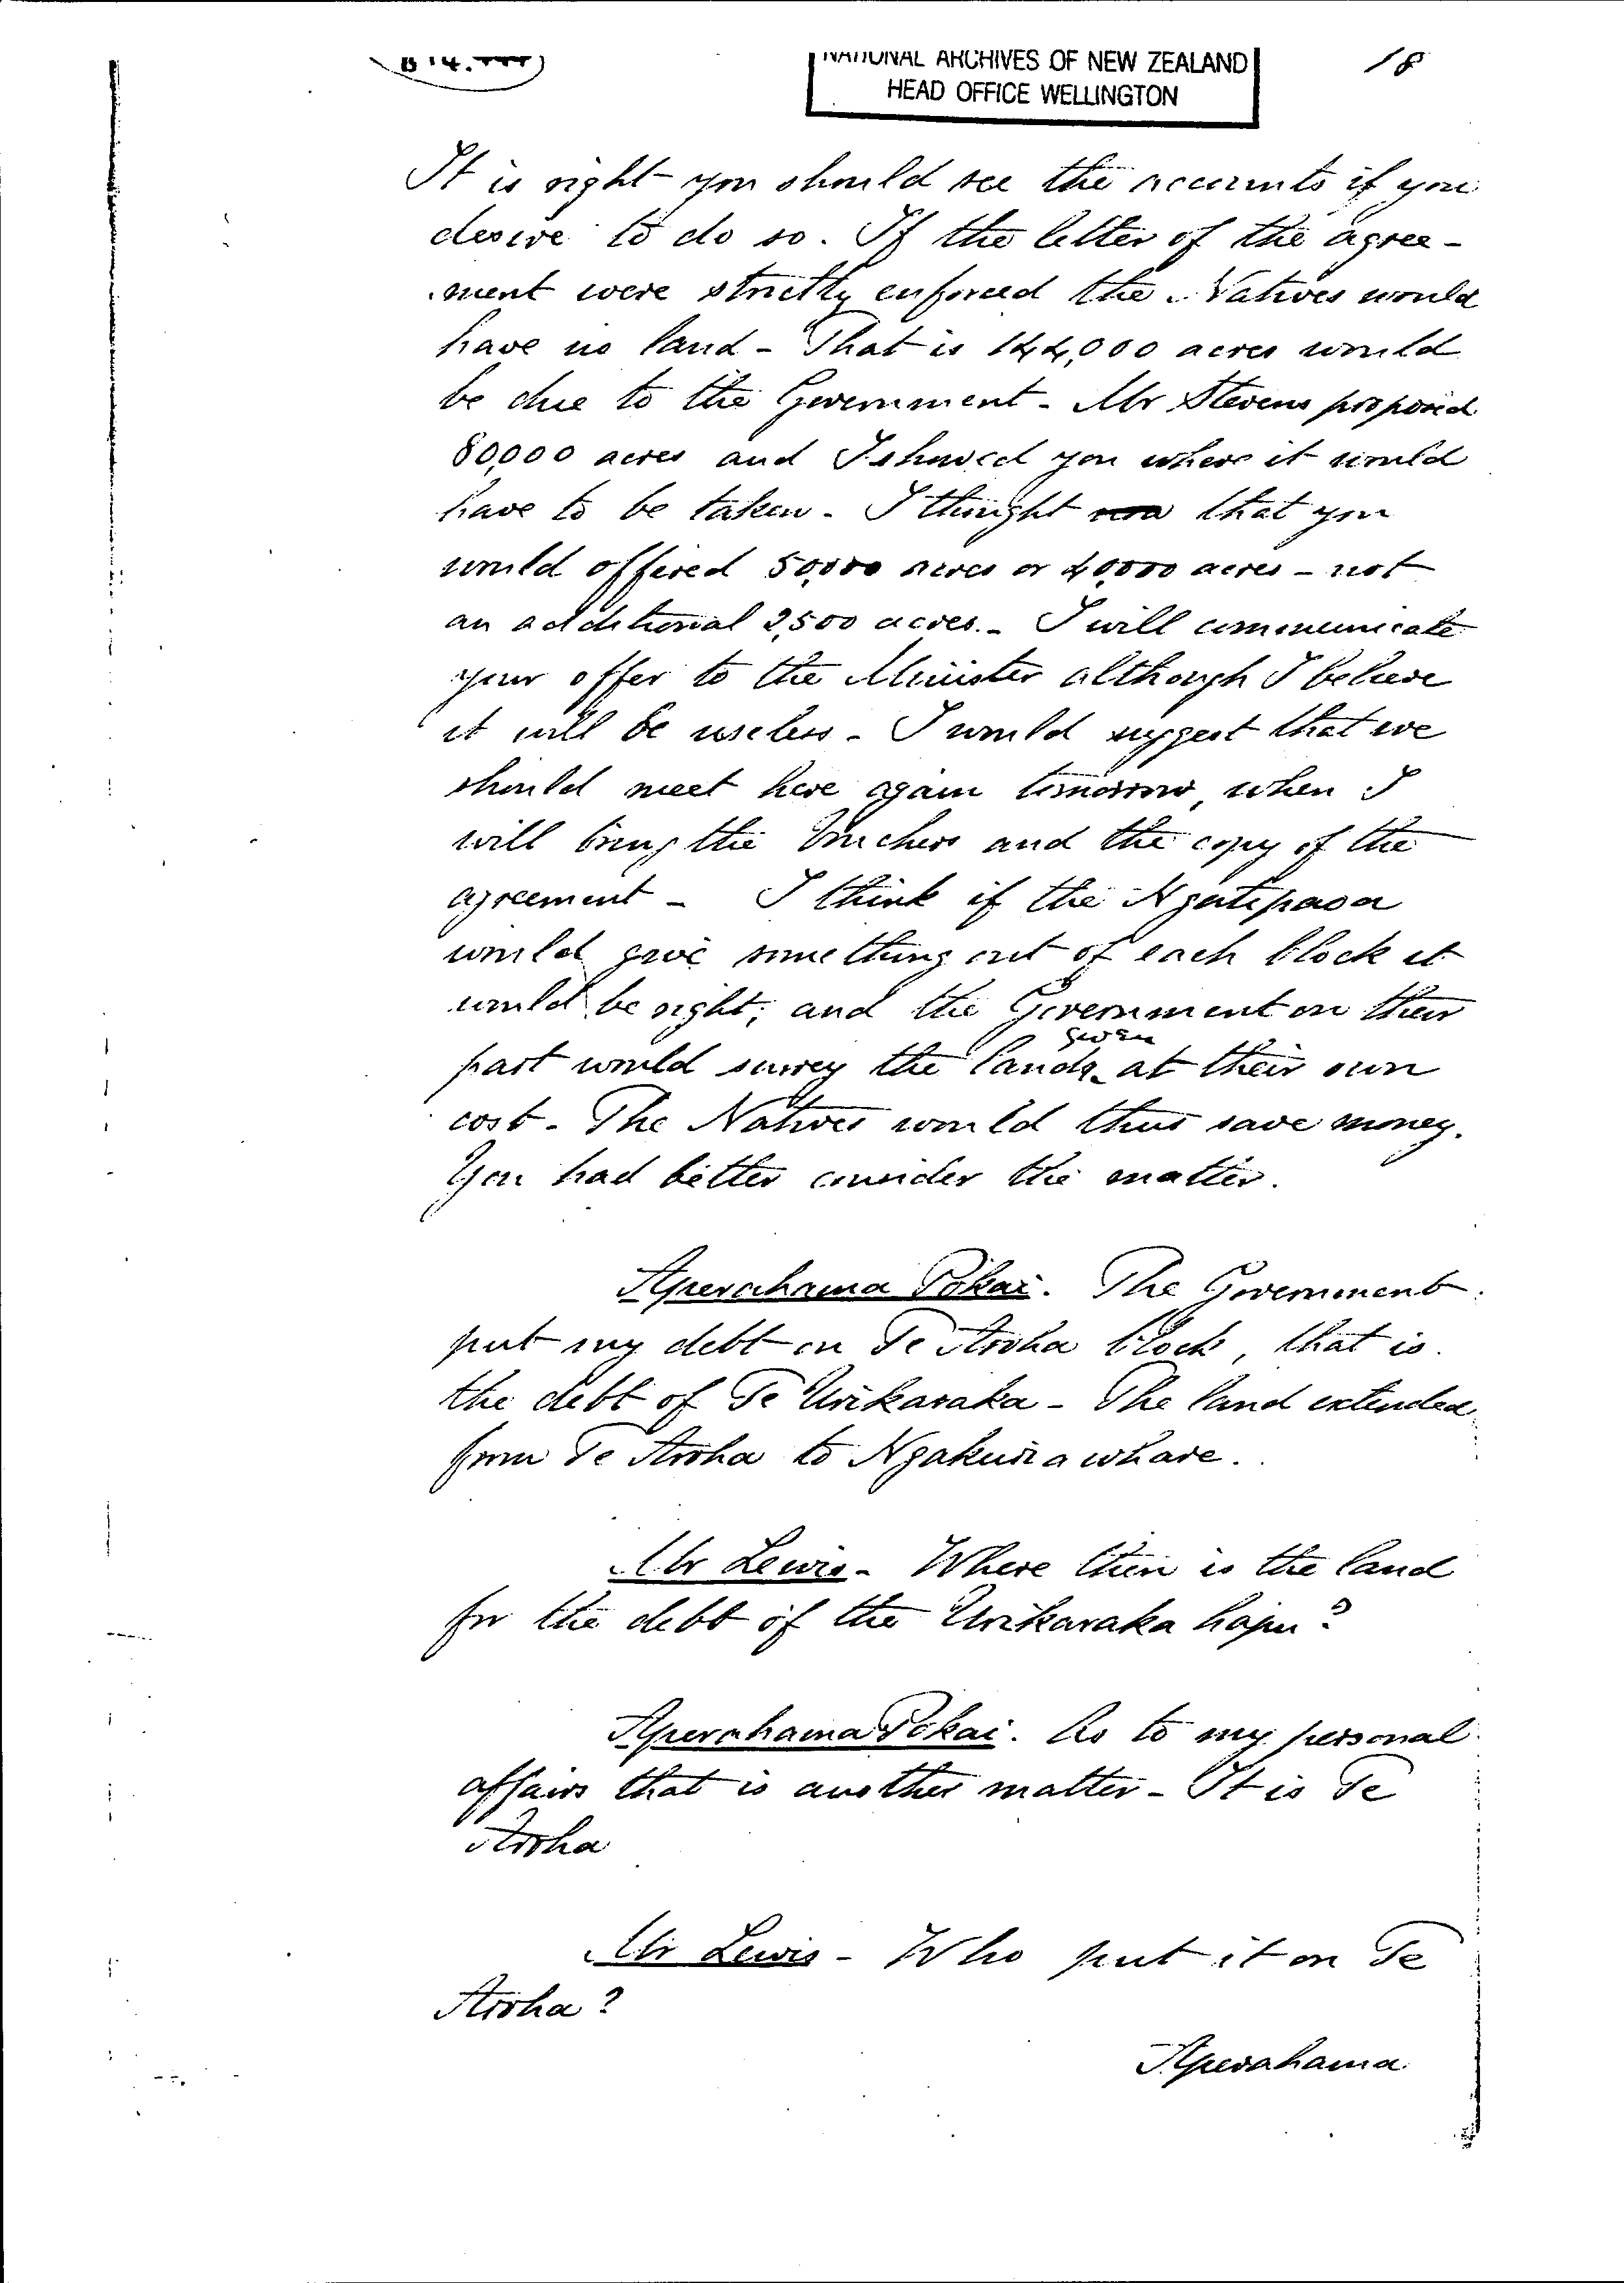 NATIONAL ARCHIVES OF NEW ZEALAND
HEAD OFFICE WELLINGTON
18
It is right you should see the accounts if you
desire to do so. If the letter of the agree-
ment were strictly enforced the Natives would
have no land - That is 144,000 acres would
be due to the Government - Mr Stevens proposed
80,000 acres and I showed you where it would
have to be taken - I thought that you
would offered 50,000 acres or 40,000 acres - not
an additional 2,500 acres. - I will communicate
your offer to the Minister although I believe
it will be useless - I would suggest that we
should meet here again tomorrow, when I
will bring the vouchers and the copy of the
agreement - I think if the Ngatipaoa
would give something out of each block it
would be right; and the Government on their
given
part would survey the lands at their own
cost - The Natives would thus save money.
You had better consider the matter.
Aperahama Pokai. The Government
put my debt on Te Aroha block, that is
the debt of Te Urikaraka - The land extended
from Te Aroha to Ngakuriawhare.
Mr Lewis - Where then is the land
for the debt of the Urikaraka hapu?
Aperahama Pokai. As to my personal
affairs that is another matter - It is Te
Aroha
Mr Lewis - Who put it on Te
Aroha?
Aperahama